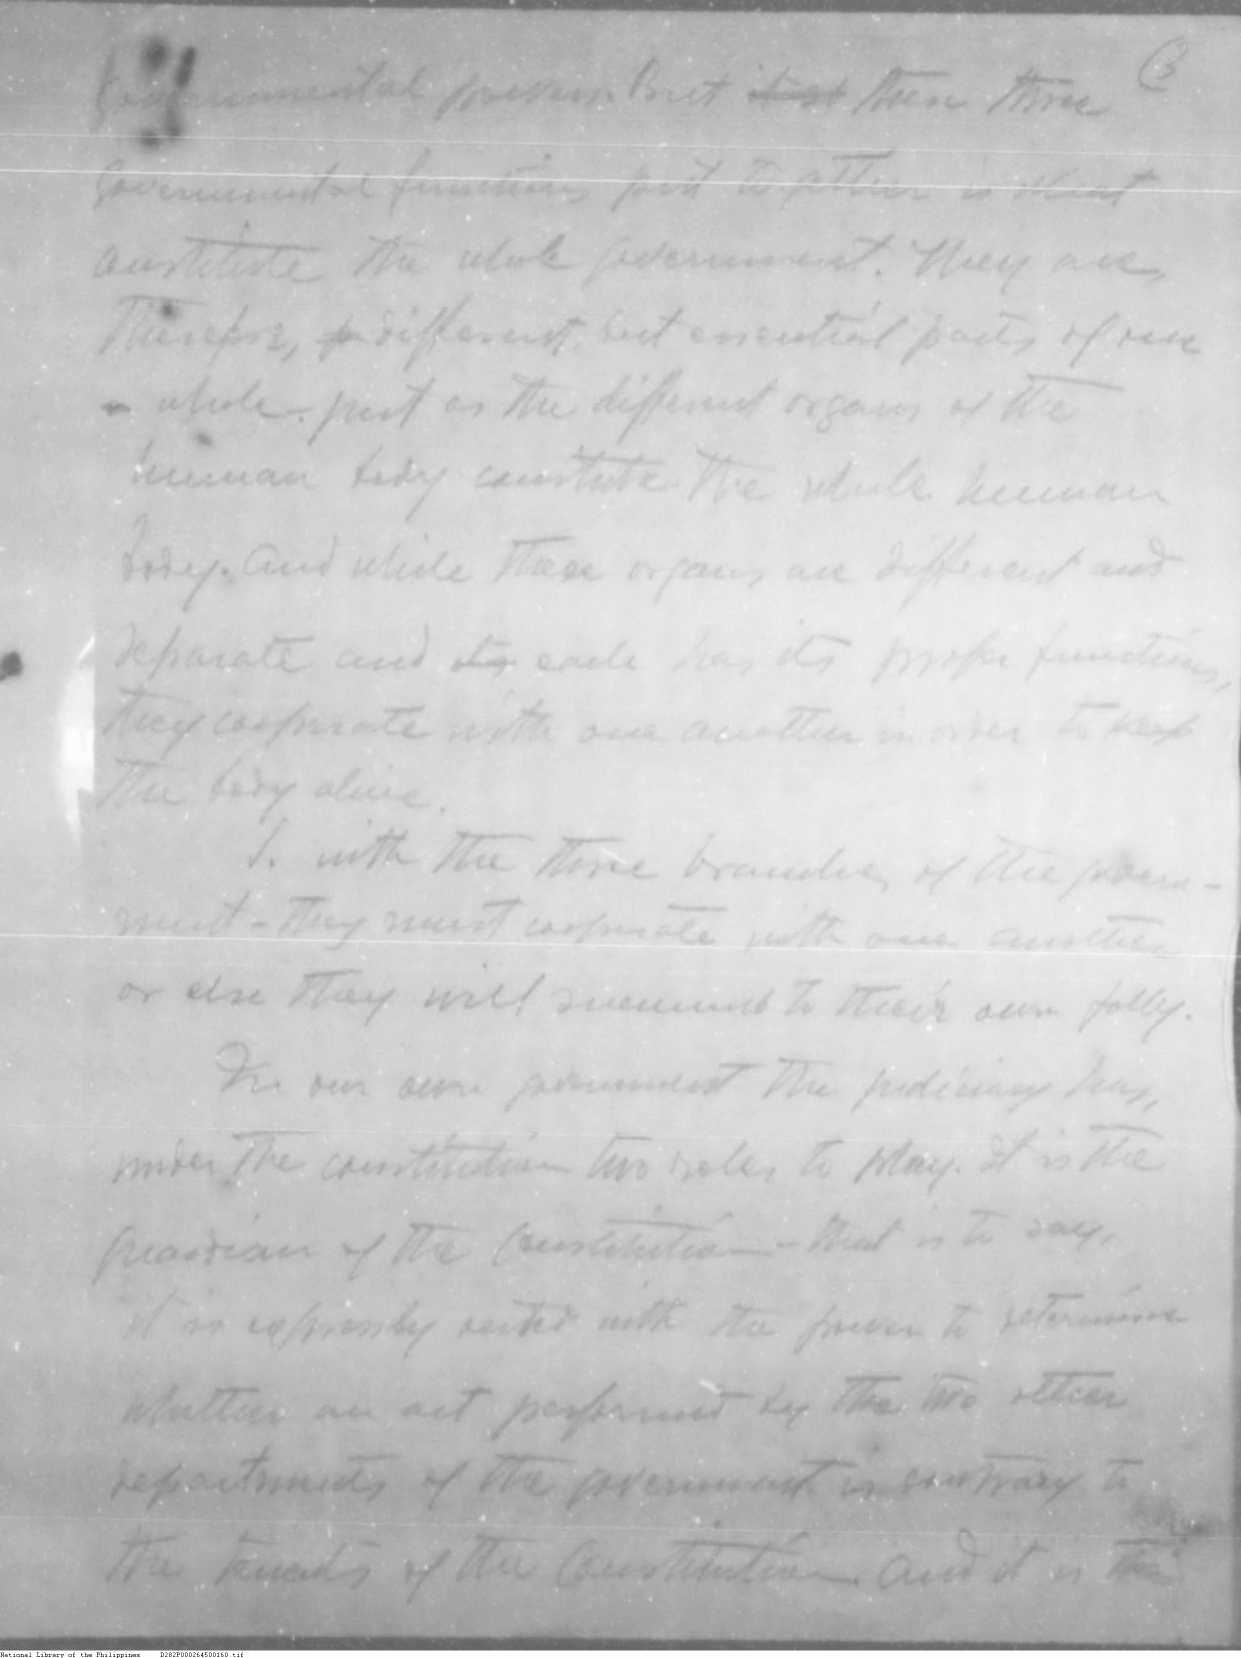 3
Governmental powers. But these three
Governmental functions put together is what
constitute the whole government. They are,
therefore, different, but essential parts of one
whole - just as the different organs of the
human body constitute the whole human
body. And while these organs are different and
separate and each has its proper functions,
they cooperate with one another in order to keep
the body alive.
So with the three branches of the govern-
ment - they must cooperate with one another
or else they will succumb to their own folly.
In our own government the judiciary has,
under the constitution two roles to play. It is the
guardian of the Constitution - that is to say,
it is expressly vested with the power to determine
whether an act performed by the two other
departments of the government is contrary to
the tenents of the Constitution. And it is
National Library of the Philippines D282P000264500160.tif